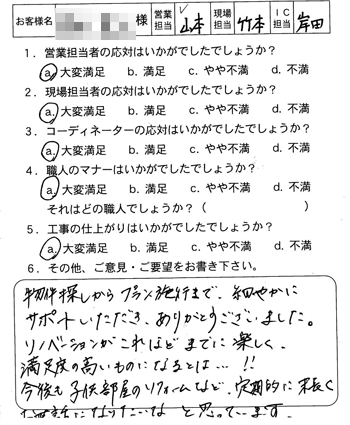 お客様名 様 営業担当 山本 現場担当 竹本 IC担当 岸田
1. 営業担当者の応対はいかがでしたでしょうか?
a. 大変満足 b. 満足 c. やや不満 d. 不満
2. 現場担当者の応対はいかがでしたでしょうか?
a. 大変満足 b. 満足 c. やや不満 d. 不満
3. コーディネーターの応対はいかがでしたでしょうか?
a. 大変満足 b. 満足 c. やや不満 d. 不満
4. 職人のマナーはいかがでしたでしょうか?
a. 大変満足 b. 満足 c. やや不満 d. 不満
それはどの職人でしょうか?( )
5. 工事の仕上がりはいかがでしたでしょうか?
a. 大変満足 b. 満足 c. やや不満 d. 不満
6. その他、ご意見・ご要望をお書き下さい。
物件探しからプラン施行まで、細やかに
サポートいただき、ありがとうございました。
リノベーションがこれほどまでに楽しく、
満足度の高いものになるとは…!!
今後も子供部屋のリフォームなど、定期的に末長く
お世話になりたいな と思っています。